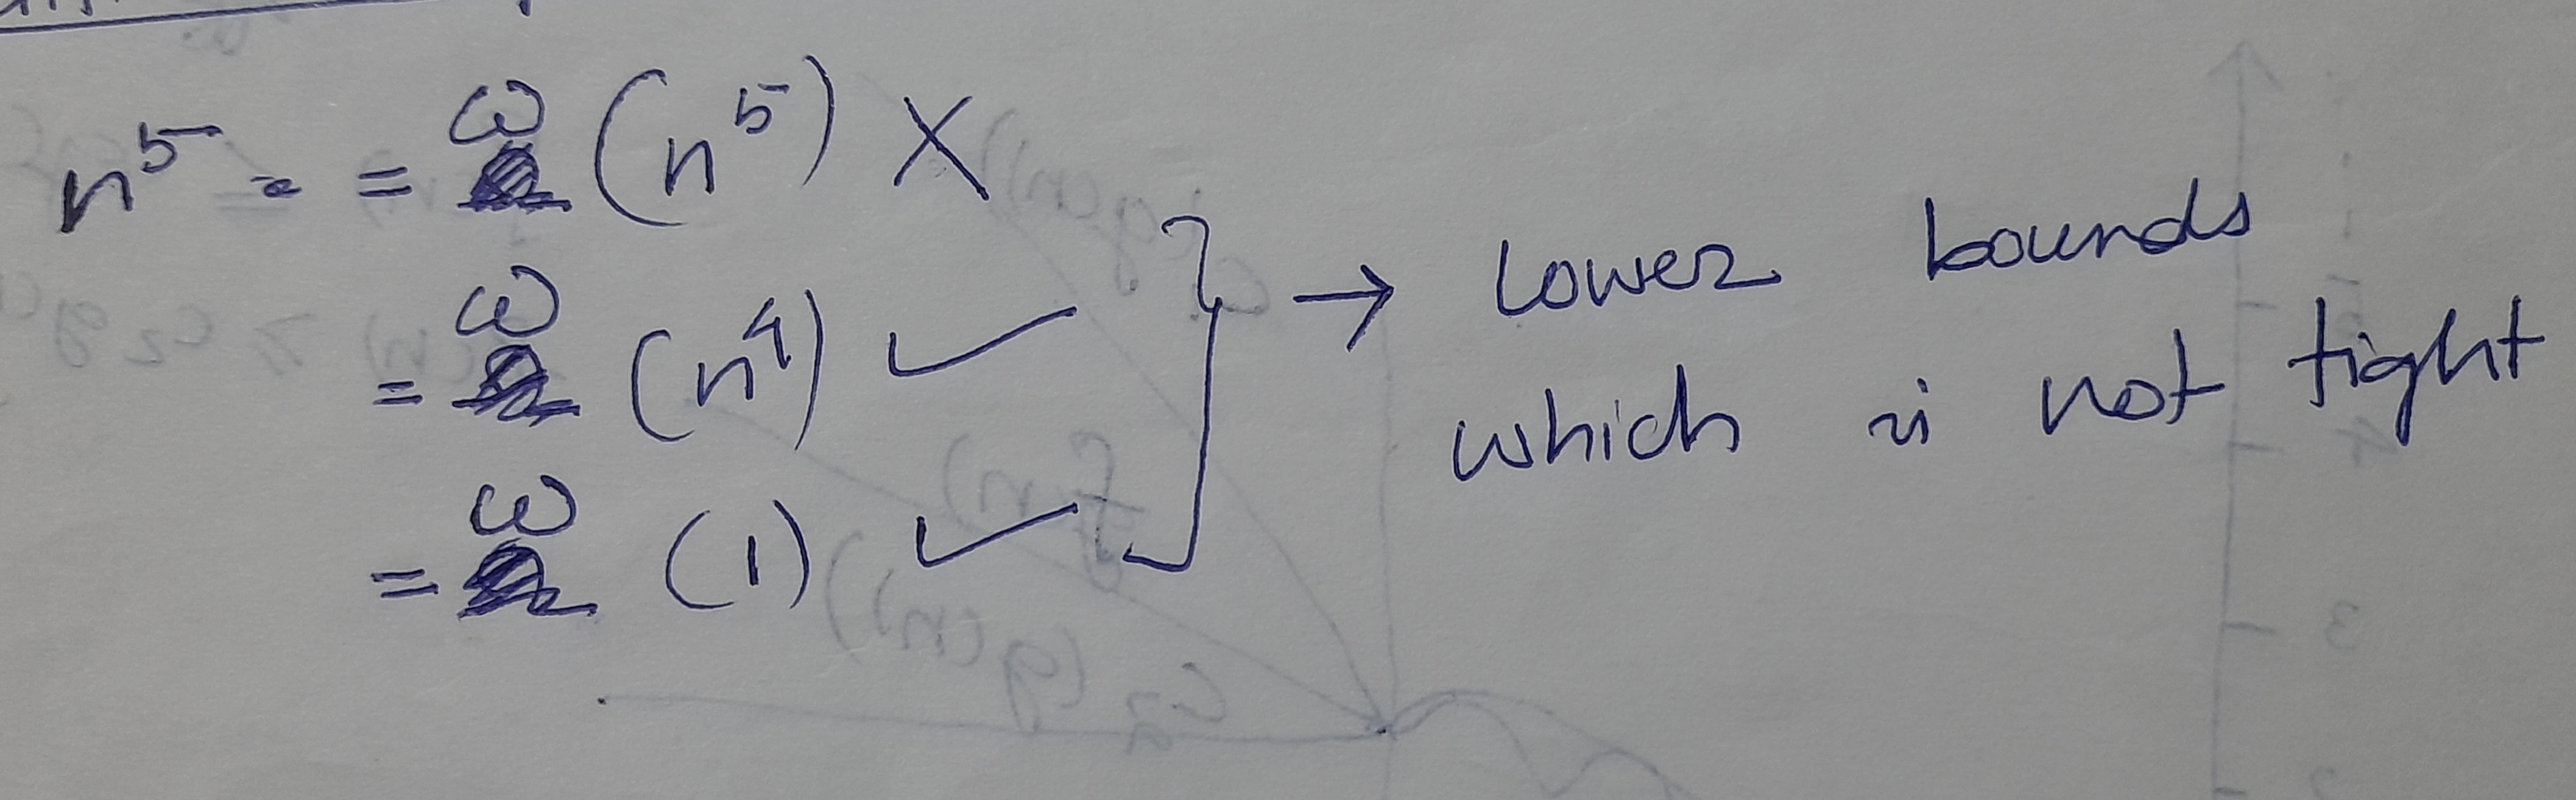 n⁵ = = ω (n⁵) ✗
= ω (n⁴) ✓
= ω (1) ✓
→ Lower bounds
which is not tight